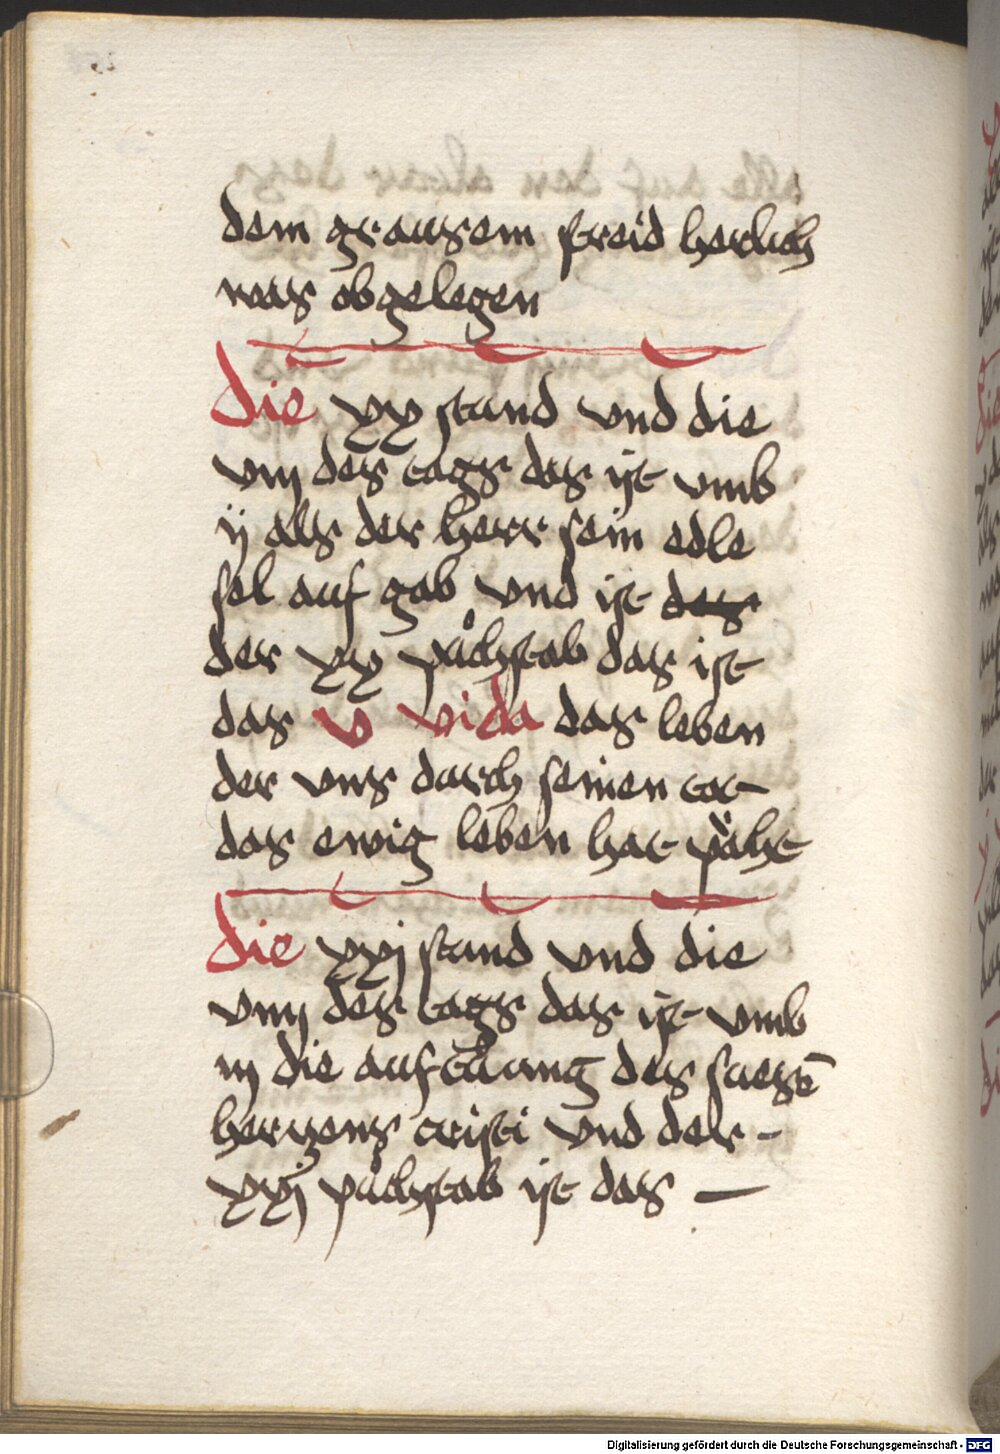 dem grausem streid herlich
was obgelegen
die xx stund vnd die
viij des tags das ist vmb
ij als der herr sein edle
sel auf gab vnd ist das
der xx půchstab das ist
das v vida das leben
der vns durch seinen tot
das ewig leben hat
die xxj stund vnd die
viiij des tags das ist vmb
iij die auftůung des suesē
herczens cristi vnd der -
xxj půchstab ist das —
Digitalisierung gefördert durch die Deutsche Forschungsgemeinschaft - DFG